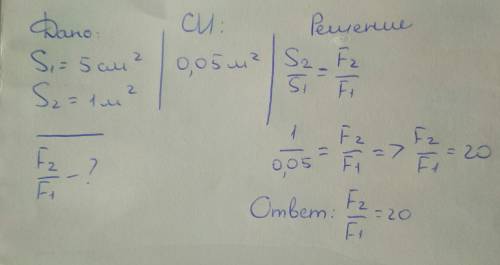 Дано:
S₁ = 5 см²
S₂ = 1 м²
F₂/F₁ - ?
СИ:
0,05 м²
Решение
S₂/S₁ = F₂/F₁
1/0,05 = F₂/F₁ => F₂/F₁ = 20
Ответ: F₂/F₁ = 20